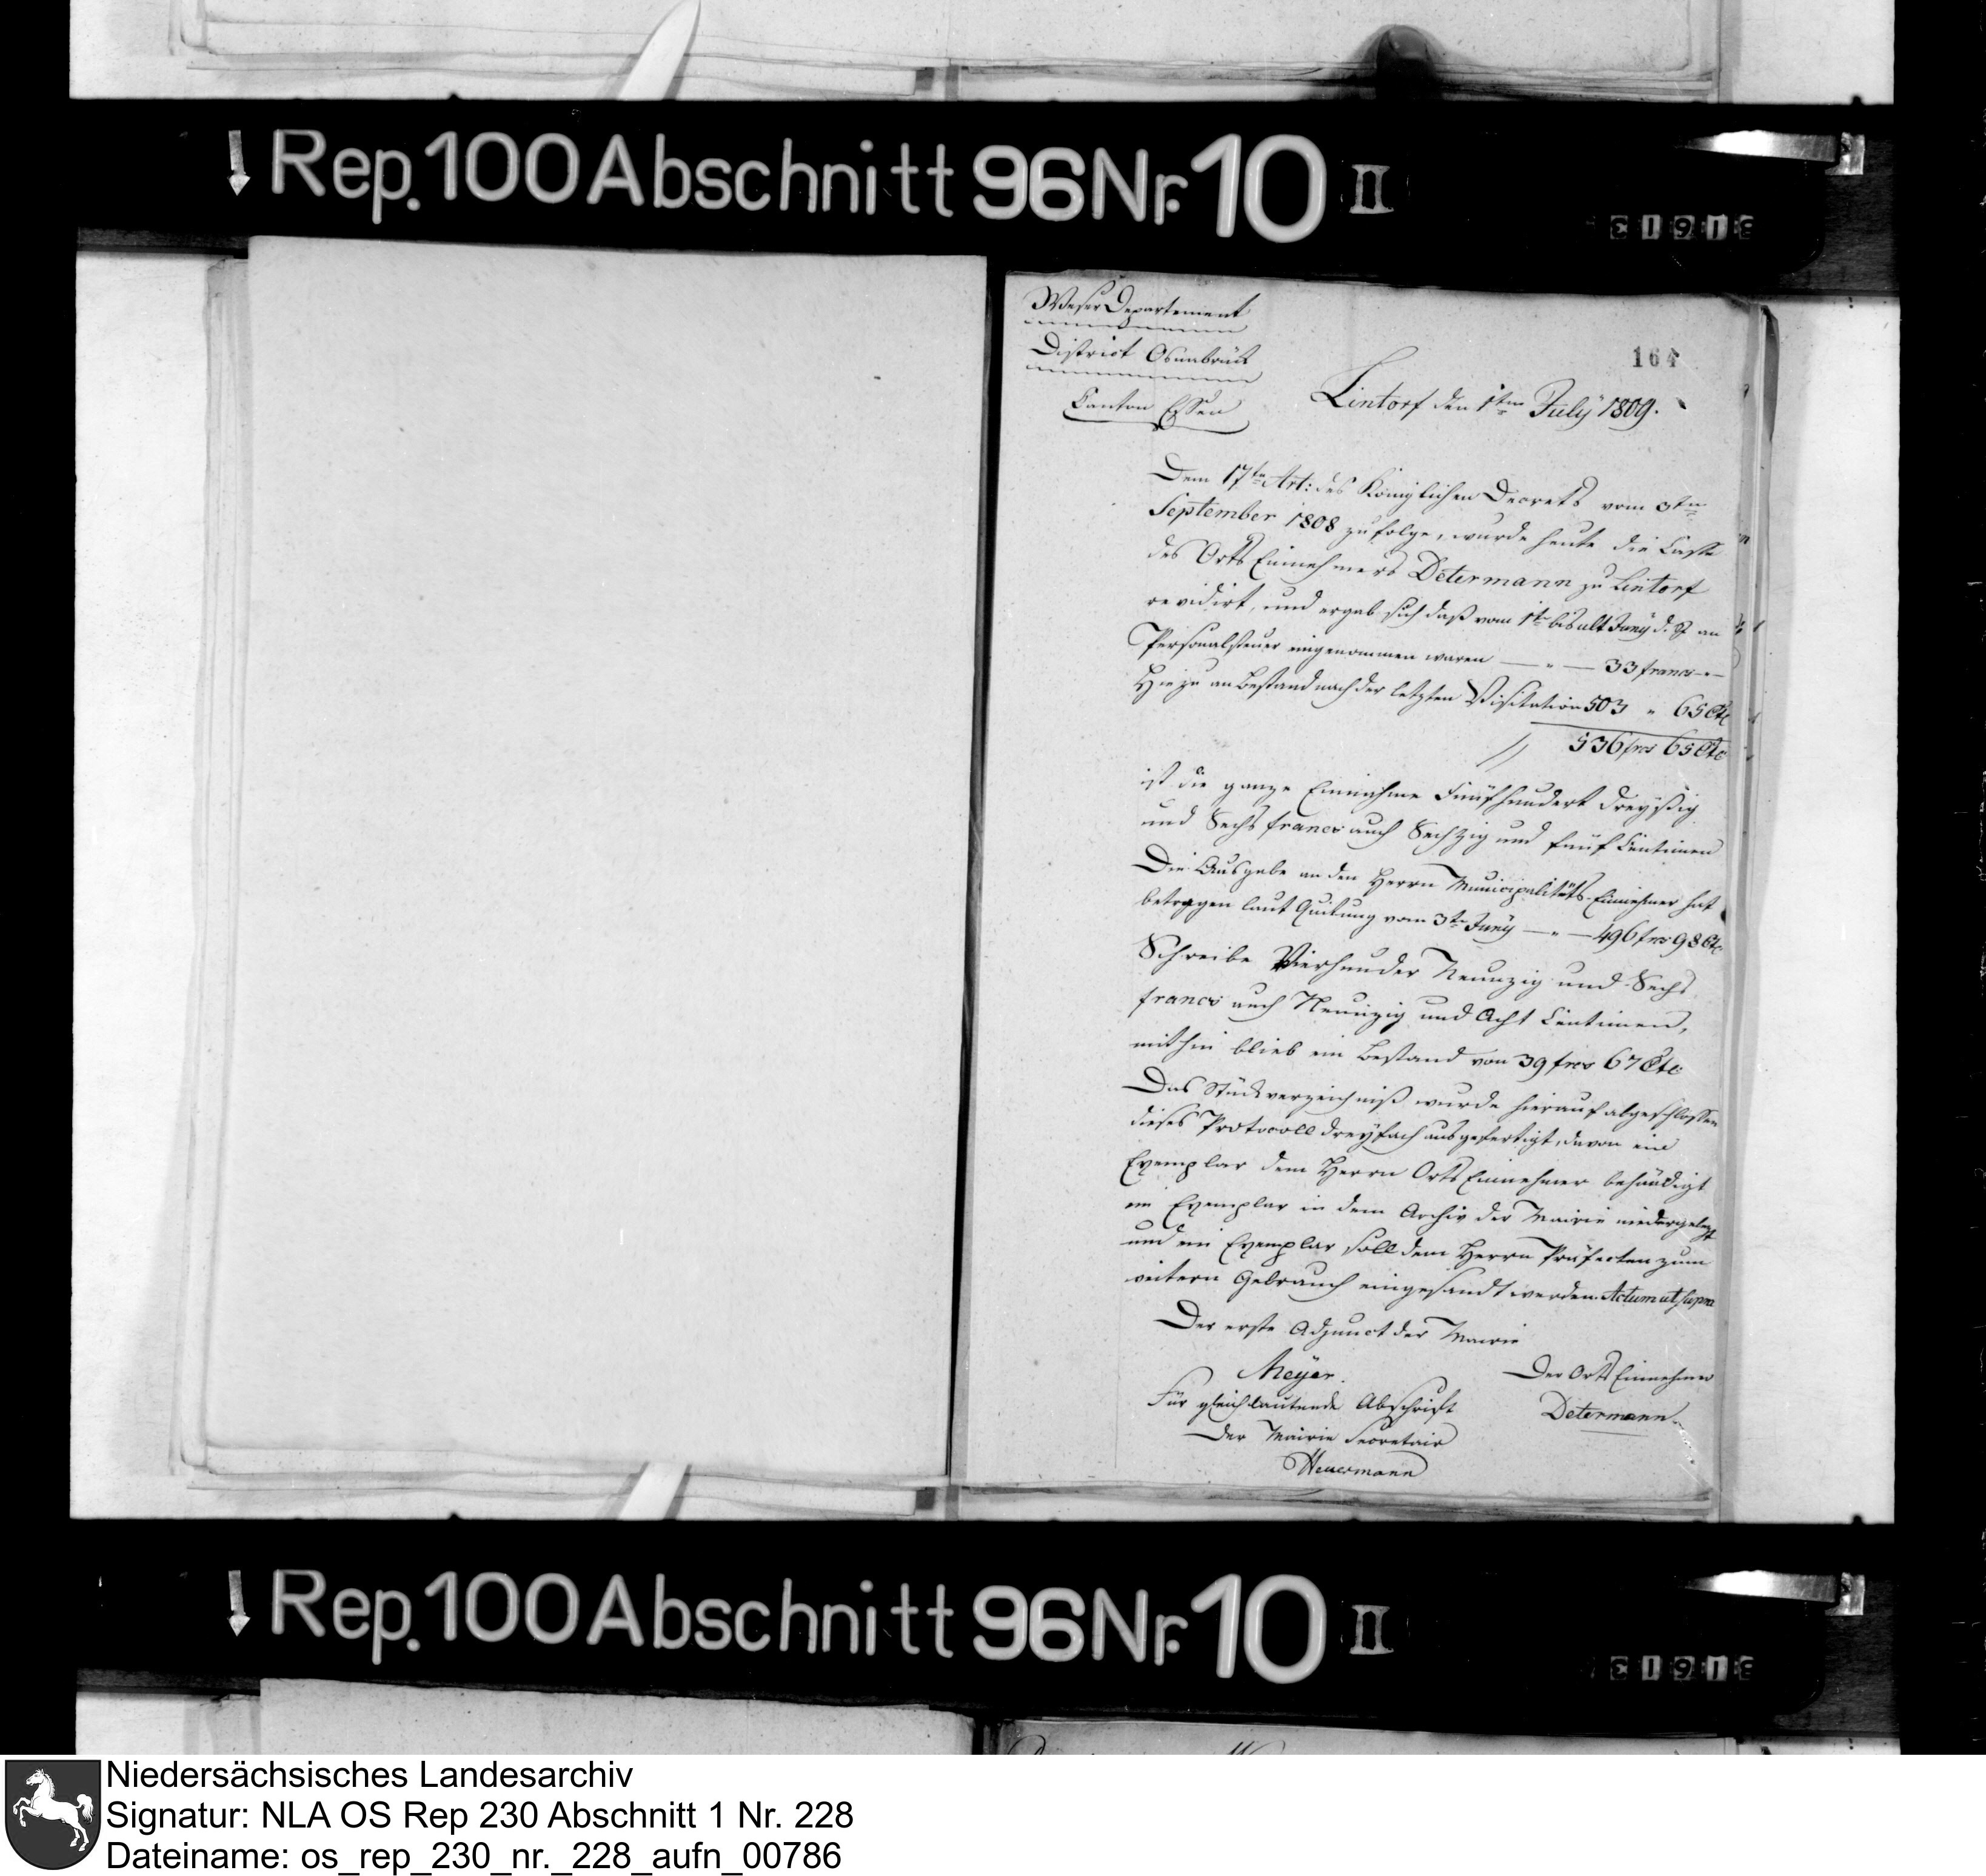 Rep. 100 Abschnitt 96 Nr. 10 II
WeserDepartement
District Osnabrück
Canton Essen
164
Lintorf den 1ten July 1809.
Dem 17ten Art: des Königlichen Decrets vom 3ten
September 1808 zufolge, wurde heute die Casse
des Orts Einnehmers Determann zu Lintorf
revidirt, und ergab sich daß vom 1ten bis ult Juny d. J an
Personalsteuer eingenommen waren — " — 33 francs — " —
Hiezu an Bestand nach der letzten Visitation 503 " 65 Cts
// 536 frcs 65 Cts
ist die ganze Einnahme Fünfhundert dreyßig
und Sechs francs auch Sechzig und fünf Centimen
Die Ausgabe an den Herrn Municipalitäts-Einnehmer hat
betragen laut Quitung vom 3ten Juny — " — 496 frcs 98 Cts
Schreibe Vierhunder Neunzig und Sechs
francs auch Neunzig und Acht Centimen,
mithin blieb ein Bestand von 39 frcs 67 Cts
Das Stückverzeichniß wurde hierauf abgeschlossen
dieses Protocoll dreyfach ausgefertigt, davon ein
Exemplar dem Herrn Orts Einnehmer behändigt
ein Exemplar in dem Archiv der Mairie niedergelegt
und ein Exemplar soll dem Herrn Präfecten zum
weitern Gebrauch eingesandt werden. Actum ut supra
Der erste Adjunct der Mairie
Meyer.
Der Orts Einnehmer
Für gleichlautende Abschrift
Determann.
Der Mairie Secretair
Heuermann
Rep. 100 Abschnitt 96 Nr. 10 II
Niedersächsisches Landesarchiv
Signatur: NLA OS Rep 230 Abschnitt 1 Nr. 228
Dateiname: os_rep_230_nr._228_aufn_00786